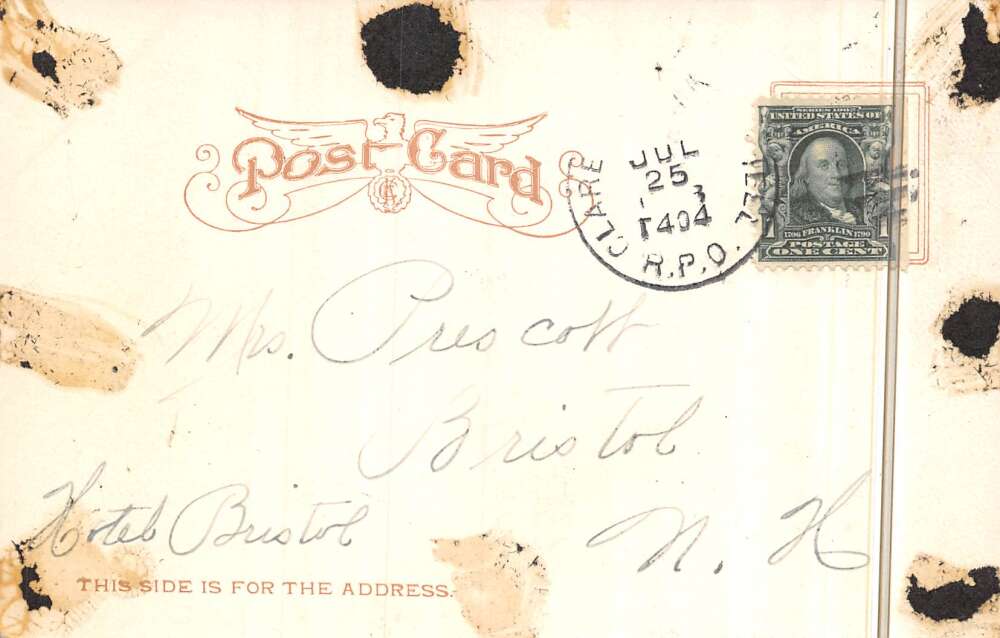 Post Card
JUL
25
1404
CLARE
R.P.O.
SERIES 1902
UNITED STATES OF
AMERICA
1706 FRANKLIN 1790
POSTAGE
1 ONE CENT 1
Mrs. Prescott
Bristol
Hotel Bristol
N. H
THIS SIDE IS FOR THE ADDRESS.